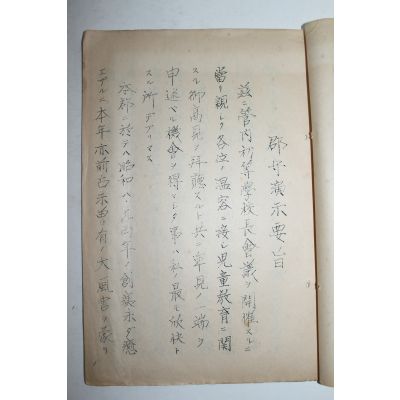 郡守演示要旨
茲ニ管内初等學校長會議ヲ開催スルニ
當リ親シク各位ノ温容ニ接シ児童教育ニ関
スル御高見ヲ拝聴スルト共ニ卑見ノ一端ヲ
申述ベル機會ヲ得マシタ事ハ私ノ最モ欣快ト
スル所デアリマス
本郡ニ於テハ昭和八、九両年ノ創痍未ダ癒
エザルニ本年亦前古未曽有ノ大風害ヲ蒙リ